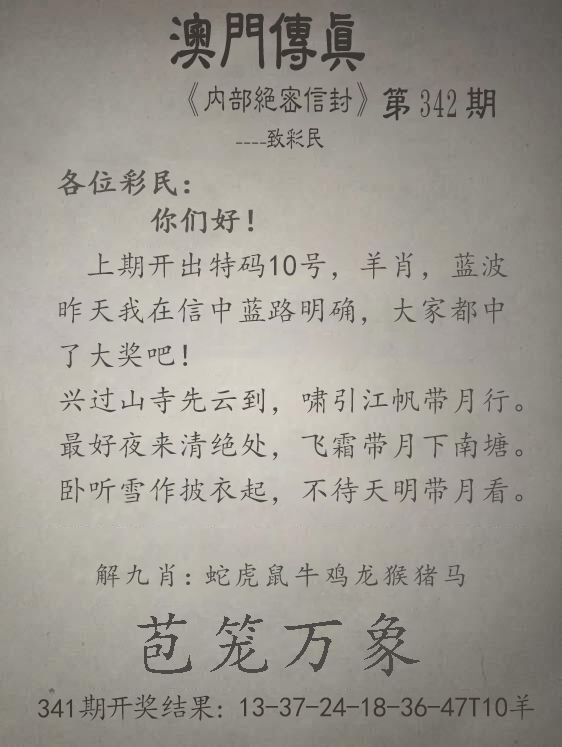 澳門傳真
《内部絕密信封》第342期
----致彩民
各位彩民：
你们好！
上期开出特码10号，羊肖，蓝波
昨天我在信中蓝路明确，大家都中
了大奖吧！
兴过山寺先云到，啸引江帆带月行。
最好夜来清绝处，飞霜带月下南塘。
卧听雪作披衣起，不待天明带月看。
解九肖：蛇虎鼠牛鸡龙猴猪马
苞笼万象
341期开奖结果：13-37-24-18-36-47T10羊